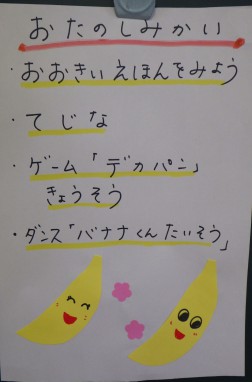 おたのしみかい
・おおきいえほんをみよう
・てじな
・ゲーム「デカパン」
きょうそう
・ダンス「バナナくんたいそう」